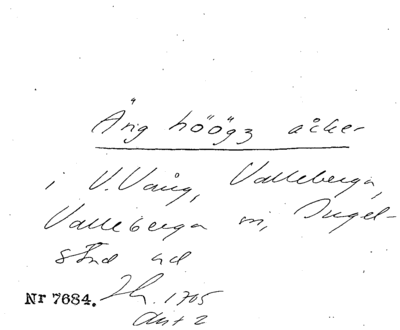 Äng höögz åcker
i V. Vång, Valleberga,
Valleberga sn, Ingel-
stad hd
Nr 7684. Lh. 1705
Akt 2